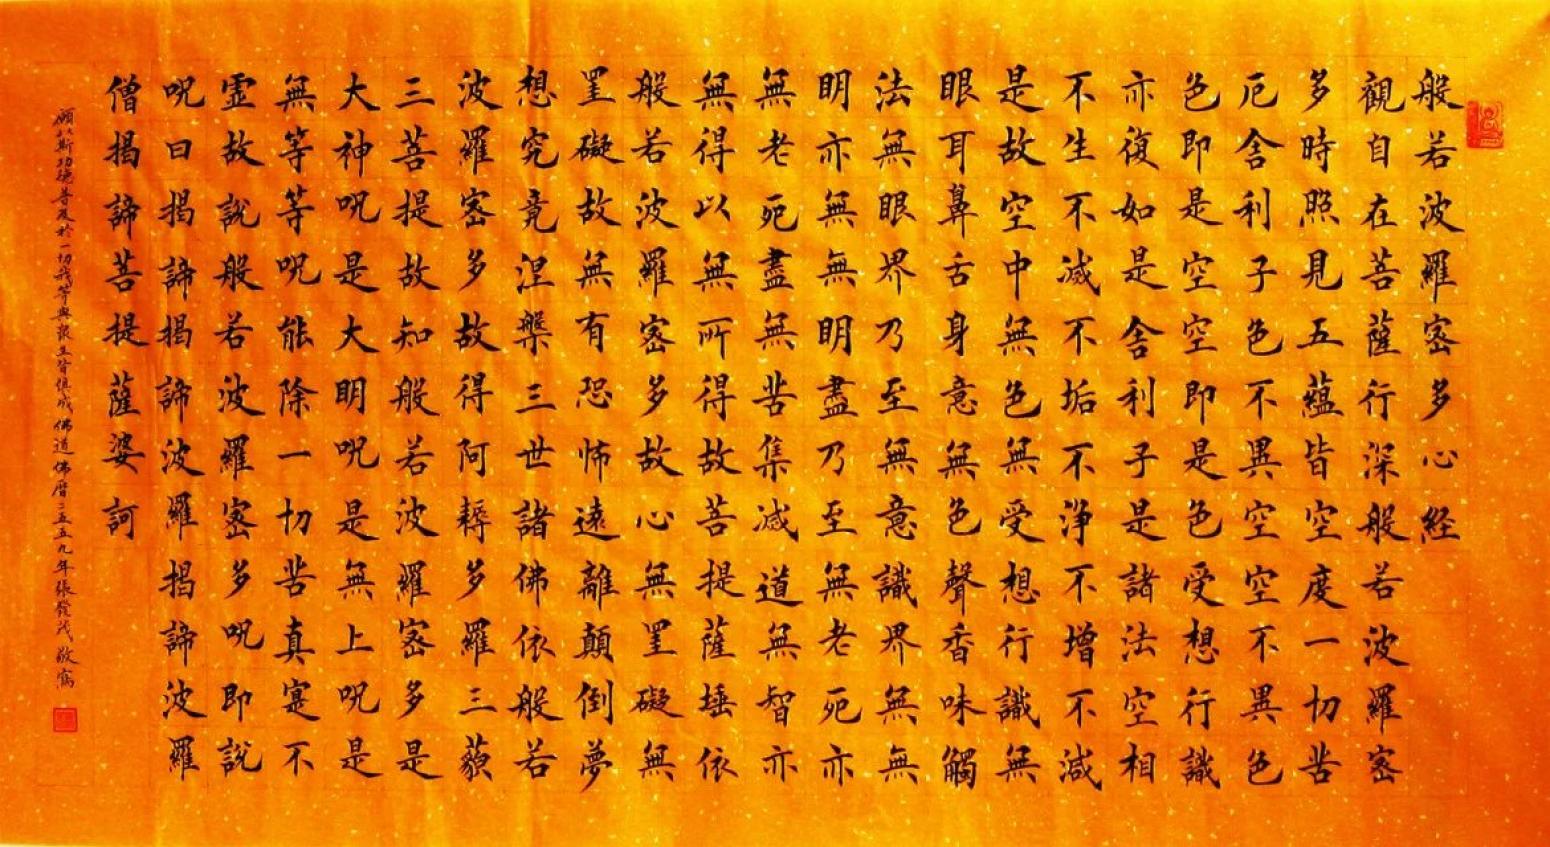 般若波羅密多心経
觀自在菩薩行深般若波羅密
多時照見五蘊皆空度一切苦
厄舍利子色不異空空不異色
色即是空空即是色受想行識
亦復如是舍利子是諸法空相
不生不滅不垢不淨不增不減
是故空中無色無受想行識無
眼耳鼻舌身意無色聲香味觸
法無眼界乃至無意識界無無
明亦無無明盡乃至無老死亦
無老死盡無苦集滅道無智亦
無得以無所得故菩提薩埵依
般若波羅密多故心無罣礙無
罣礙故無有恐怖遠離顛倒夢
想究竟涅槃三世諸佛依般若
波羅密多故得阿耨多羅三藐
三菩提故知般若波羅密多是
大神呪是大明呪是無上呪是
無等等呪能除一切苦真寔不
虛故說般若波羅密多呪即說
呪曰揭諦揭諦波羅揭諦波羅
僧揭諦菩提薩婆訶
願以斯功德普及於一切我等與眾生皆俱成佛道佛曆二五五九年張發茂敬寫